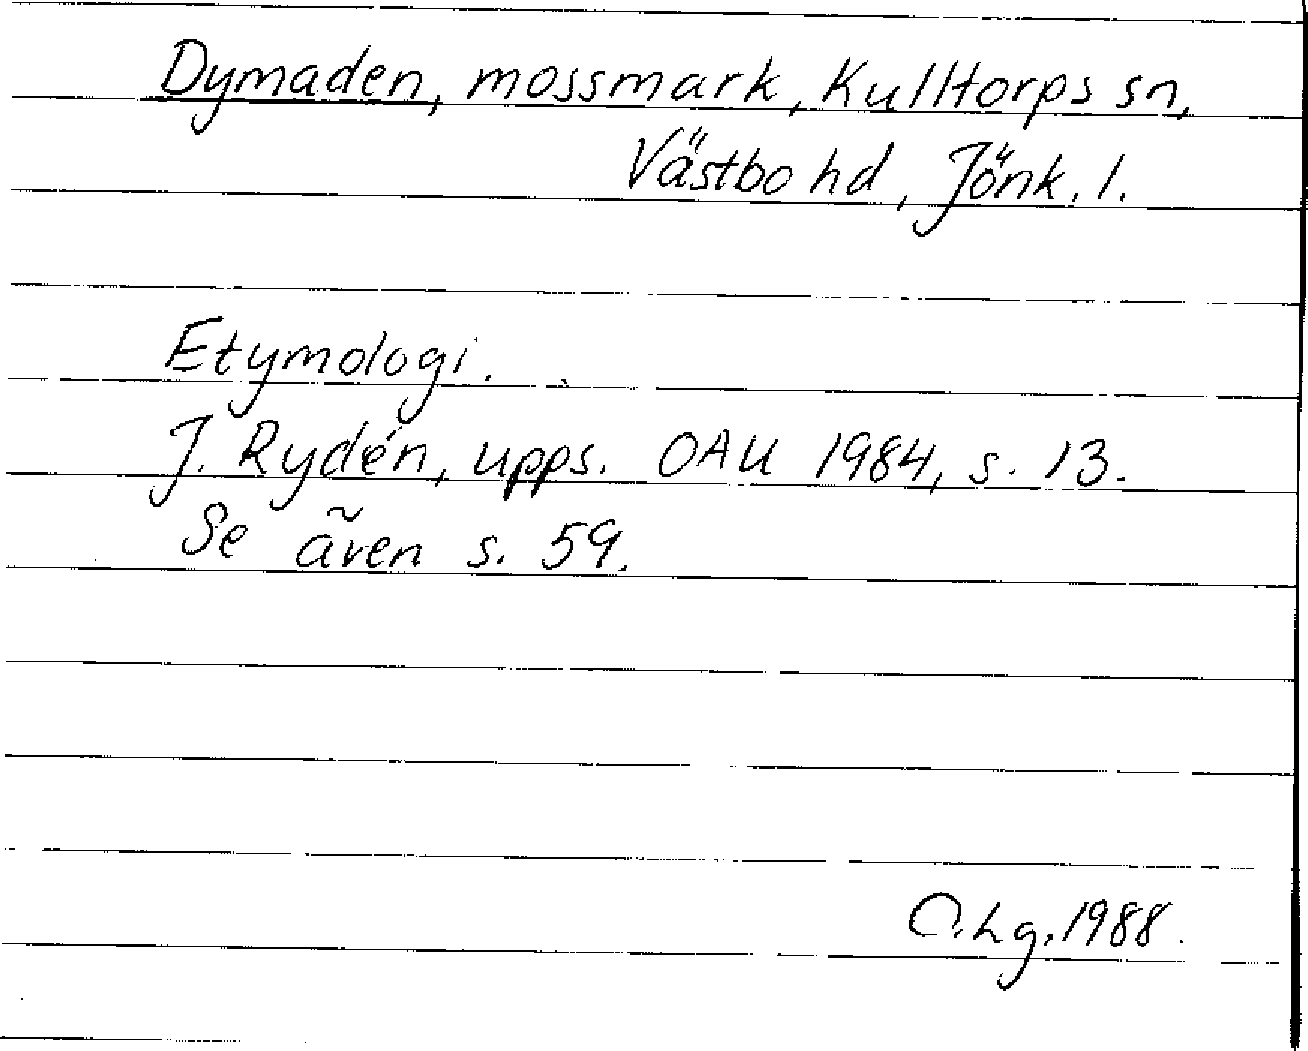 Dymaden, mossmark, Kulltorps sn,
Västbo hd, Jönk. l.
Etymologi.
J. Rydén, upps. OAU 1984, s. 13.
Se även s. 59.
O.Lg. 1988.